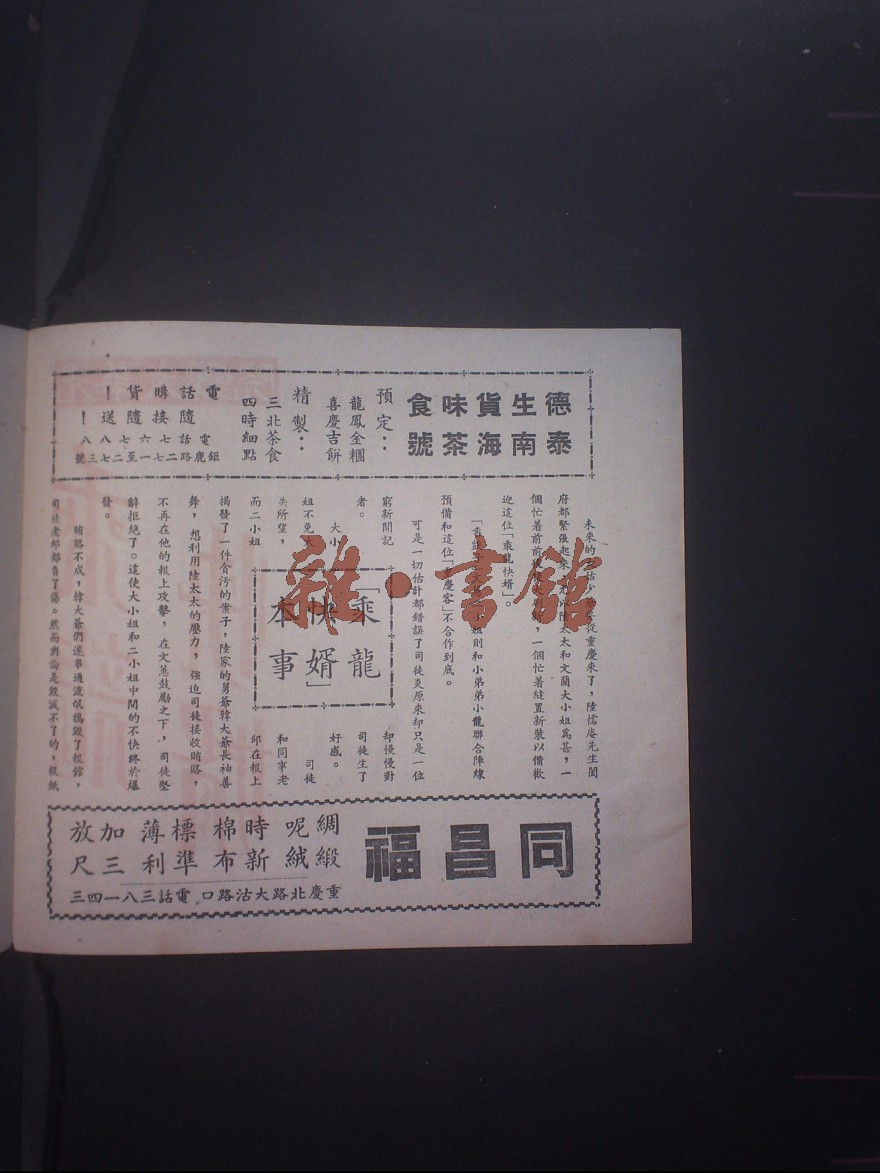 德泰生南貨海味茶食號
預定：
龍鳳金糰
喜慶吉餅
精製：
三北茶食
四時細點
電話購貨！
隨接隨送！
電話七六七八八
鉅鹿路二七一至二七三號
未來的少從重慶來了，陸懦庵先生闔
府都緊張起來，尤以陸太太和文蘭大小姐為甚，一
個忙着前前後後新，一個忙着縫置新裝以備歡
迎這位「乘龍快婿」。
小姐則和小弟弟小龍聯合陣線
預備和這位「重慶客」不合作到底。
可是一切估計都錯誤了司徒炎原來却只是一位
窮新聞記
者。　大小
姐不免大
失所望，
而二小姐
「乘龍
快婿」
本事
却慢慢對
司徒生了
好感。
司徒
和同事老
邱在報上
揭發了一件貪汚的案子，陸家的舅爺韓大爺長袖善
舞，想利用陸太太的壓力，強迫司徒接收賄賂，
不再在他的報上攻擊，在文蕙鼓勵之下，司徒堅
辭拒絕了。這使大小姐和二小姐中間的不快終於爆
發。
賄賂不成，韓大爺們遂串通流氓搗毀了報館，
司徒老邱都負了傷。然而輿論是毀滅不了的，報紙
同昌福
綢緞
呢絨
時新
棉布
標準
薄利
加三
放尺
重慶北路大沽路口　電話三八一四三
雜·書館